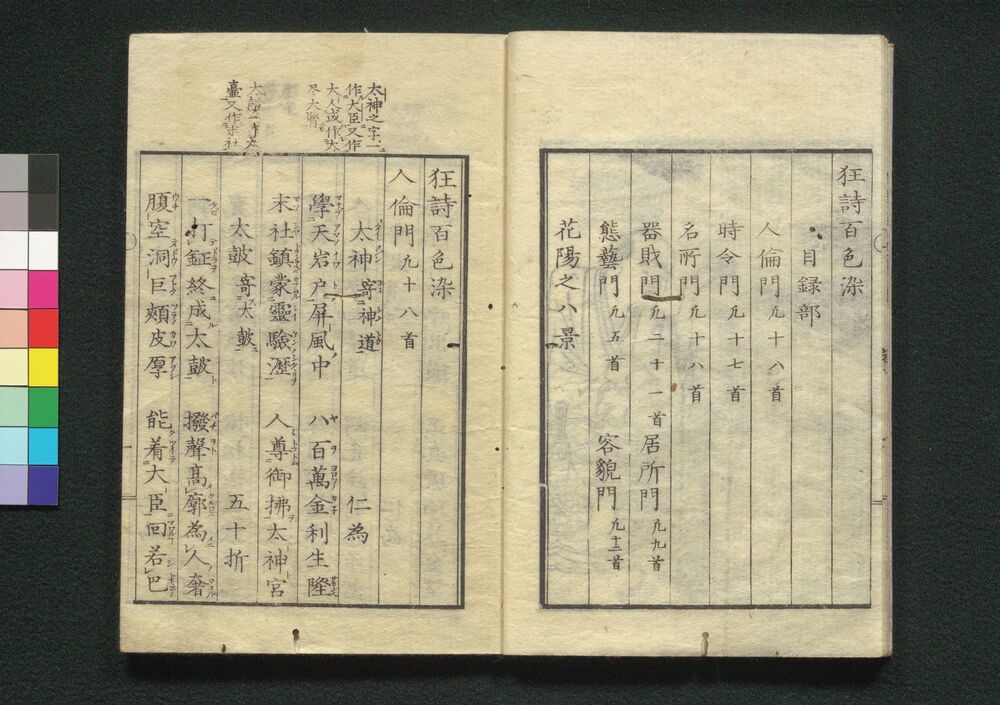 狂詩百色染
目録部
人倫門 凡十八首
時令門 凡十七首
名所門 凡十八首
器財門 凡二十一首 居所門 凡九首
態藝門 凡五首 容貌門 凡十二首
花陽之八景
太神之字一
作大臣又作
大人或作太
尽大尽
太皷一作太
臺又作末社
狂詩百色染
人倫門 凡十八首
太神 寄神道 仁為
學天岩户屏風中 八百萬金利生隆
末社鎮蒙靈驗瀝 人尊御拂太神宮
太皷 寄太皷 五十折
一打鉦終成太皷 撥聲髙廓為人奢
腹空洞巨頰皮厚 能着大臣回若巴